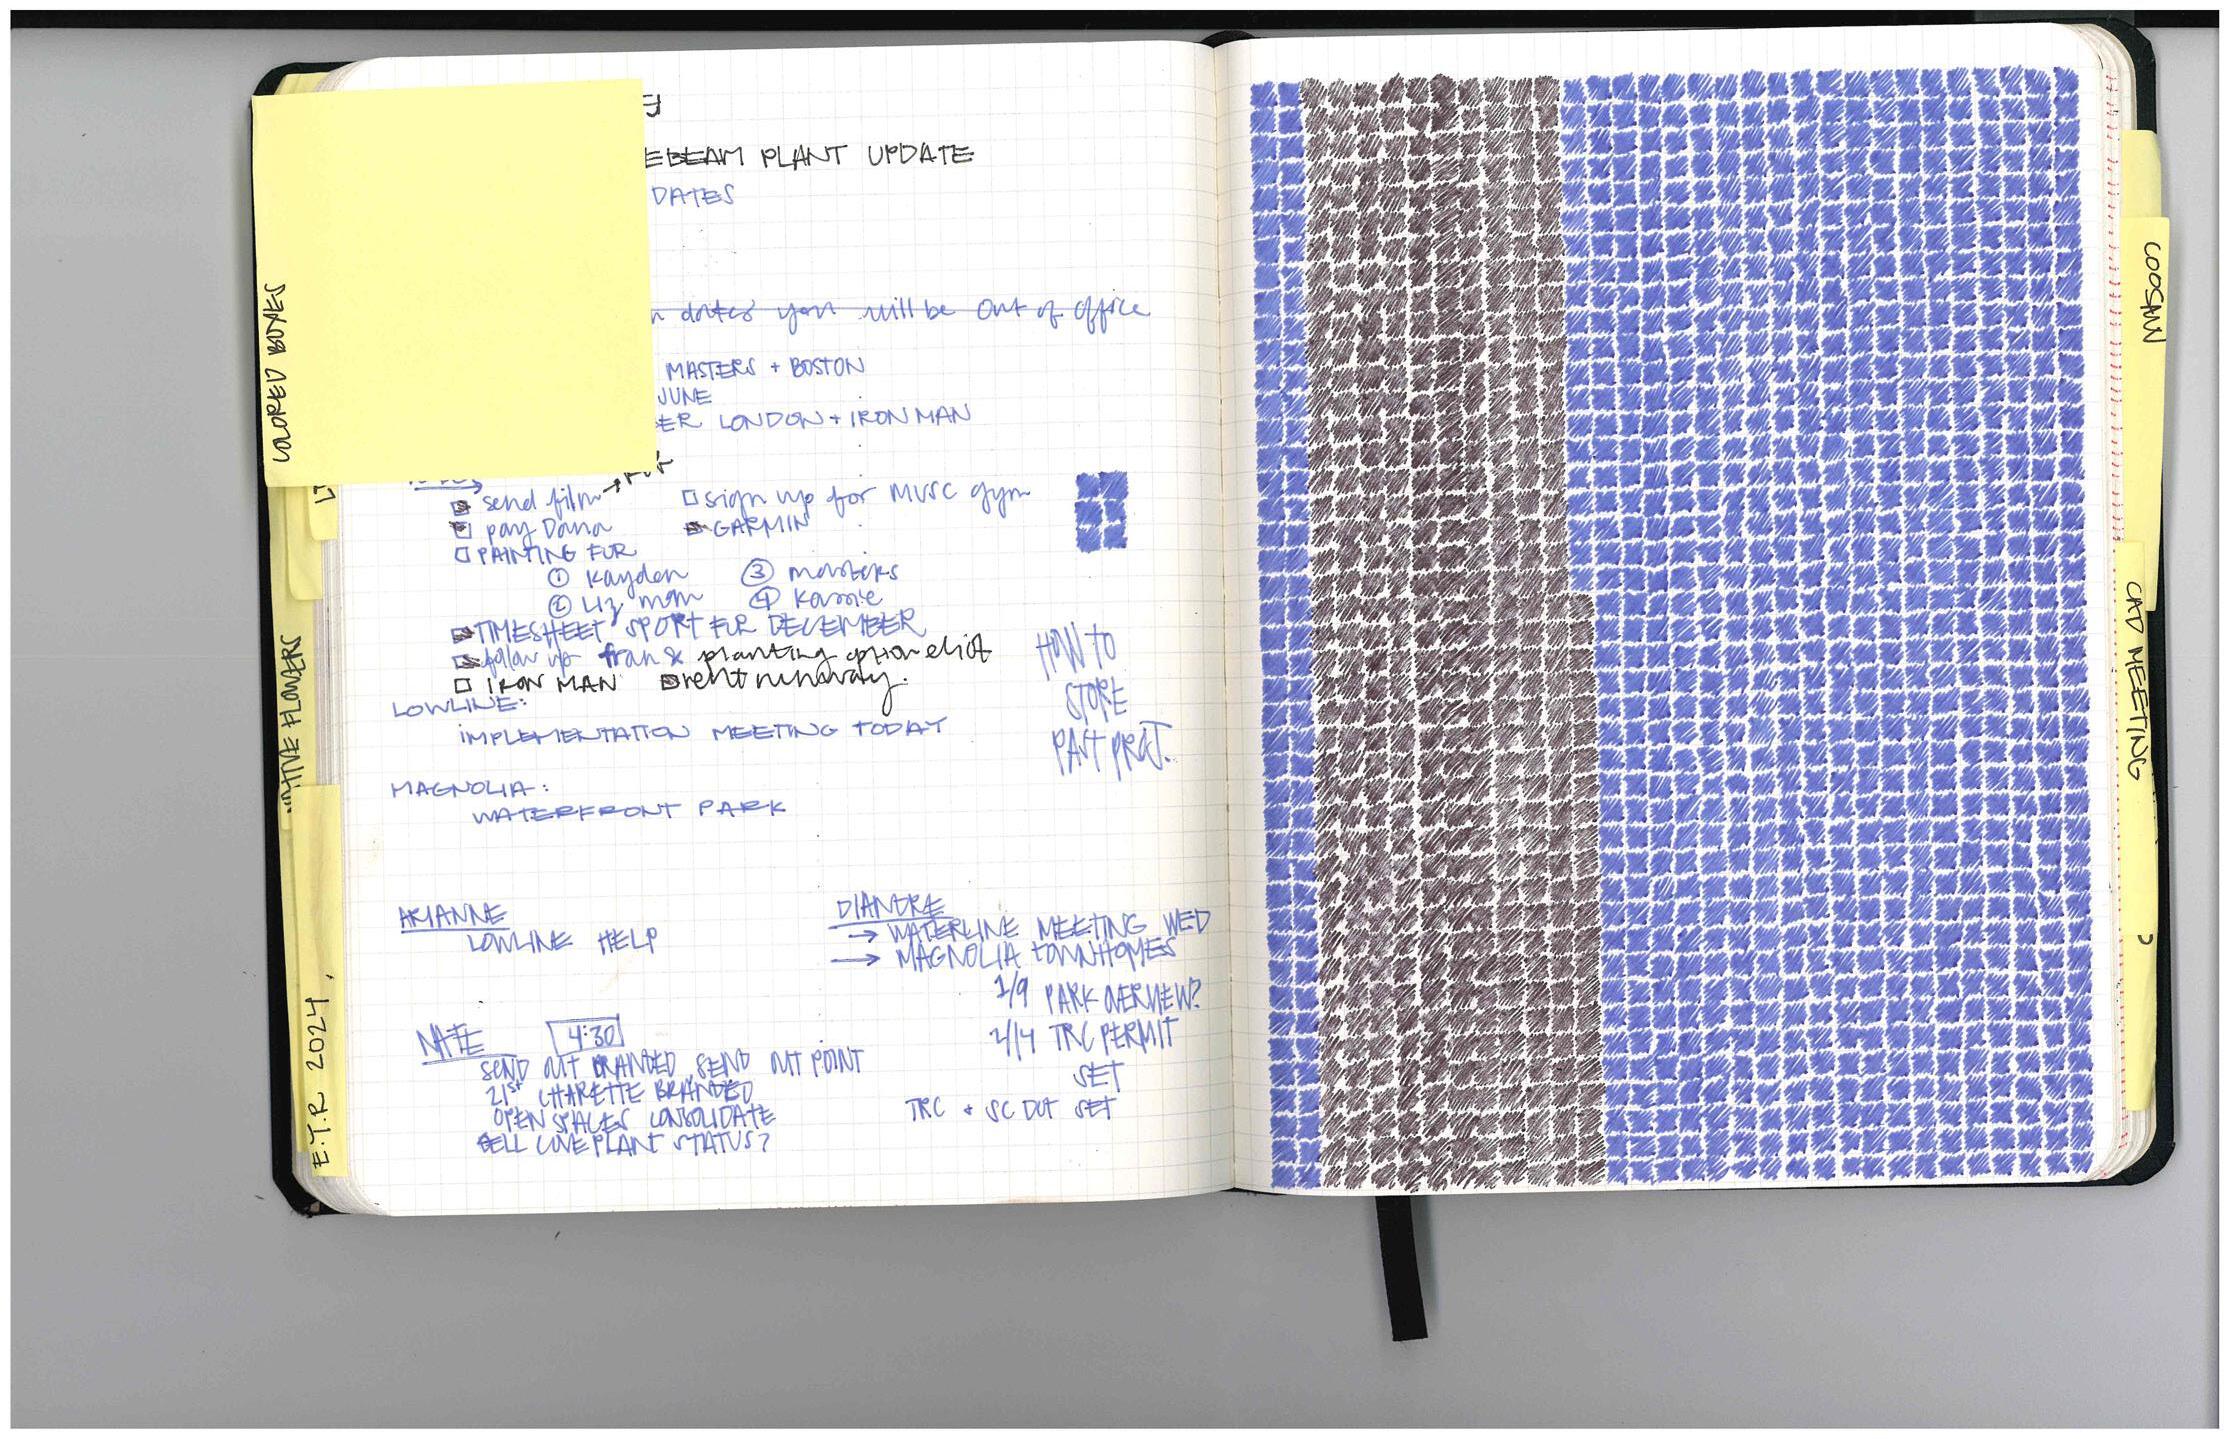 COLORED BOXES
EBEAM PLANT UPDATE
DATES
dates you will be out of office
MASTERS + BOSTON
JUNE
ER LONDON + IRON MAN
send film →
□ sign up for MUSC gym
pay Dana
GARMIN
□ PAINTING FUR
① Kayden ③ masters
② Liz mom ④ Karrie
TIMESHEET SPORT FUR DECEMBER
follow up planting option
□ IRON MAN rent runway.
LOWLINE:
IMPLEMENTATION MEETING TODAY
MAGNOLIA:
WATERFRONT PARK
HOW TO
STORE
PAST PROJ.
ARIANNE
LOWLINE HELP
DIANDRE
→ WATERLINE MEETING WED
→ MAGNOLIA TOWNHOMES
1/9 PARK OVERVIEW?
2/14 TRC PERMIT
SET
TRC + SC DOT SET
NATE 4:30
SEND OUT BRANDED, SEND OUT POINT
21st CHARETTE BRANDED
OPEN SPACES CONSOLIDATE
PLANT STATUS?
FLOWERS
E.T.R 2024
COOSAW
CAD MEETING